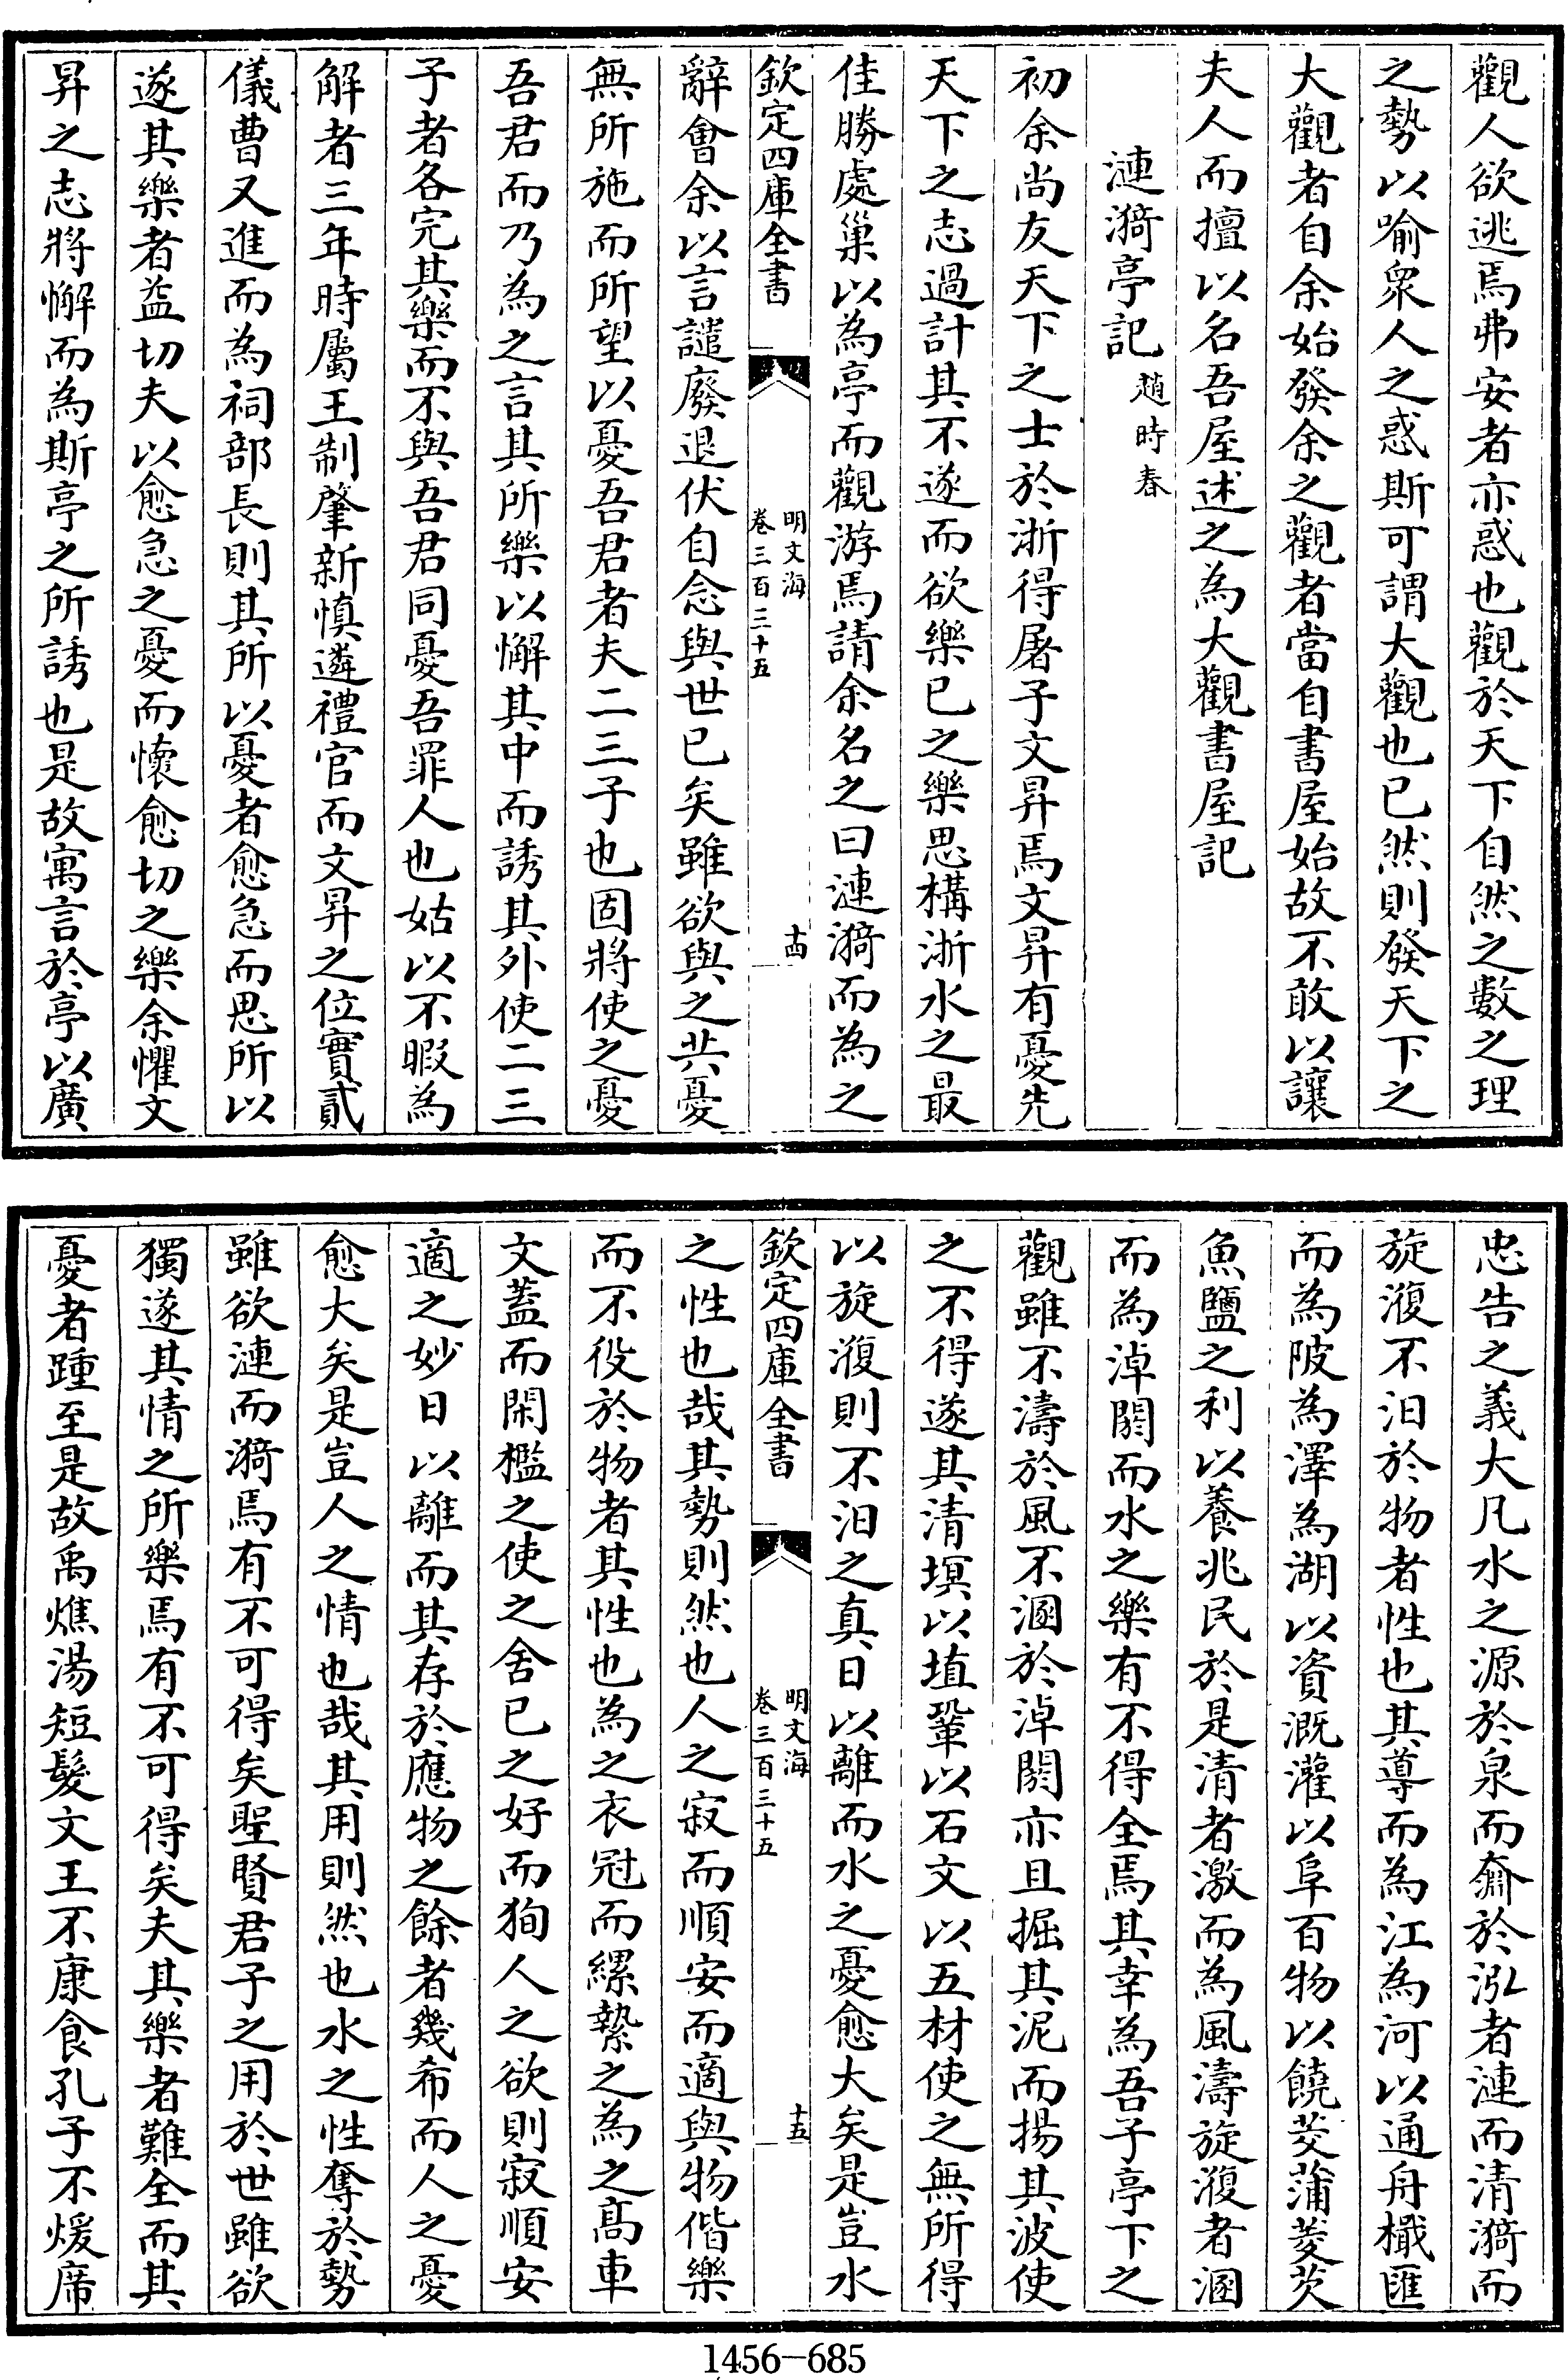 觀人欲逃焉弗安者亦惑也觀於天下自然之數之理
之勢以喻衆人之惑斯可謂大觀也已然則發天下之
大觀者自余始發余之觀者當自書屋始故不敢以讓
夫人而擅以名吾屋述之為大觀書屋記
漣漪亭記趙時春
初余尚友天下之士於浙得屠子文昇焉文昇有憂先
天下之志過計其不遂而欲樂已之樂思構浙水之最
佳勝處巢以為亭而觀游焉請余名之曰漣漪而為之
欽定四庫全書
明文海
卷三百三十五
十四
辭會余以言譴廢退伏自念與世已矣雖欲與之共憂
無所施而所望以憂吾君者夫二三子也固將使之憂
吾君而乃為之言其所樂以懈其中而誘其外使二三
子者各完其樂而不與吾君同憂吾罪人也姑以不暇為
解者三年時屬王制肇新慎遴禮官而文昇之位實貳
儀曹又進而為祠部長則其所以憂者愈急而思所以
遂其樂者益切夫以愈急之憂而懷愈切之樂余懼文
昇之志將懈而為斯亭之所誘也是故寓言於亭以廣
忠告之義大凡水之源於泉而齋於泓者漣而清漪而
旋澓不汨於物者性也其導而為江為河以通舟檝匯
而為陂為澤為湖以資溉灌以阜百物以饒茭蒲菱芡
魚鹽之利以養兆民於是清者激而為風濤旋澓者溷
而為淖閼而水之樂有不得全焉其幸為吾子亭下之
觀雖不濤於風不溷於淖閼亦且掘其泥而揚其波使
之不得遂其清塓以埴鞏以石文以五材使之無所得
以旋澓則不汨之真日以離而水之憂愈大矣是豈水
欽定四庫全書
明文海
卷三百三十五
十五
之性也哉其勢則然也人之寂而順安而適與物偕樂
而不役於物者其性也為之衣冠而縲縶之為之高車
文蓋而閑檻之使之舍已之好而狥人之欲則寂順安
適之妙日以離而其存於應物之餘者幾希而人之憂
愈大矣是豈人之情也哉其用則然也水之性奪於勢
雖欲漣而漪焉有不可得矣聖賢君子之用於世雖欲
獨遂其情之所樂焉有不可得矣夫其樂者難全而其
憂者踵至是故禹燋湯短髮文王不康食孔子不煖席
1456—685